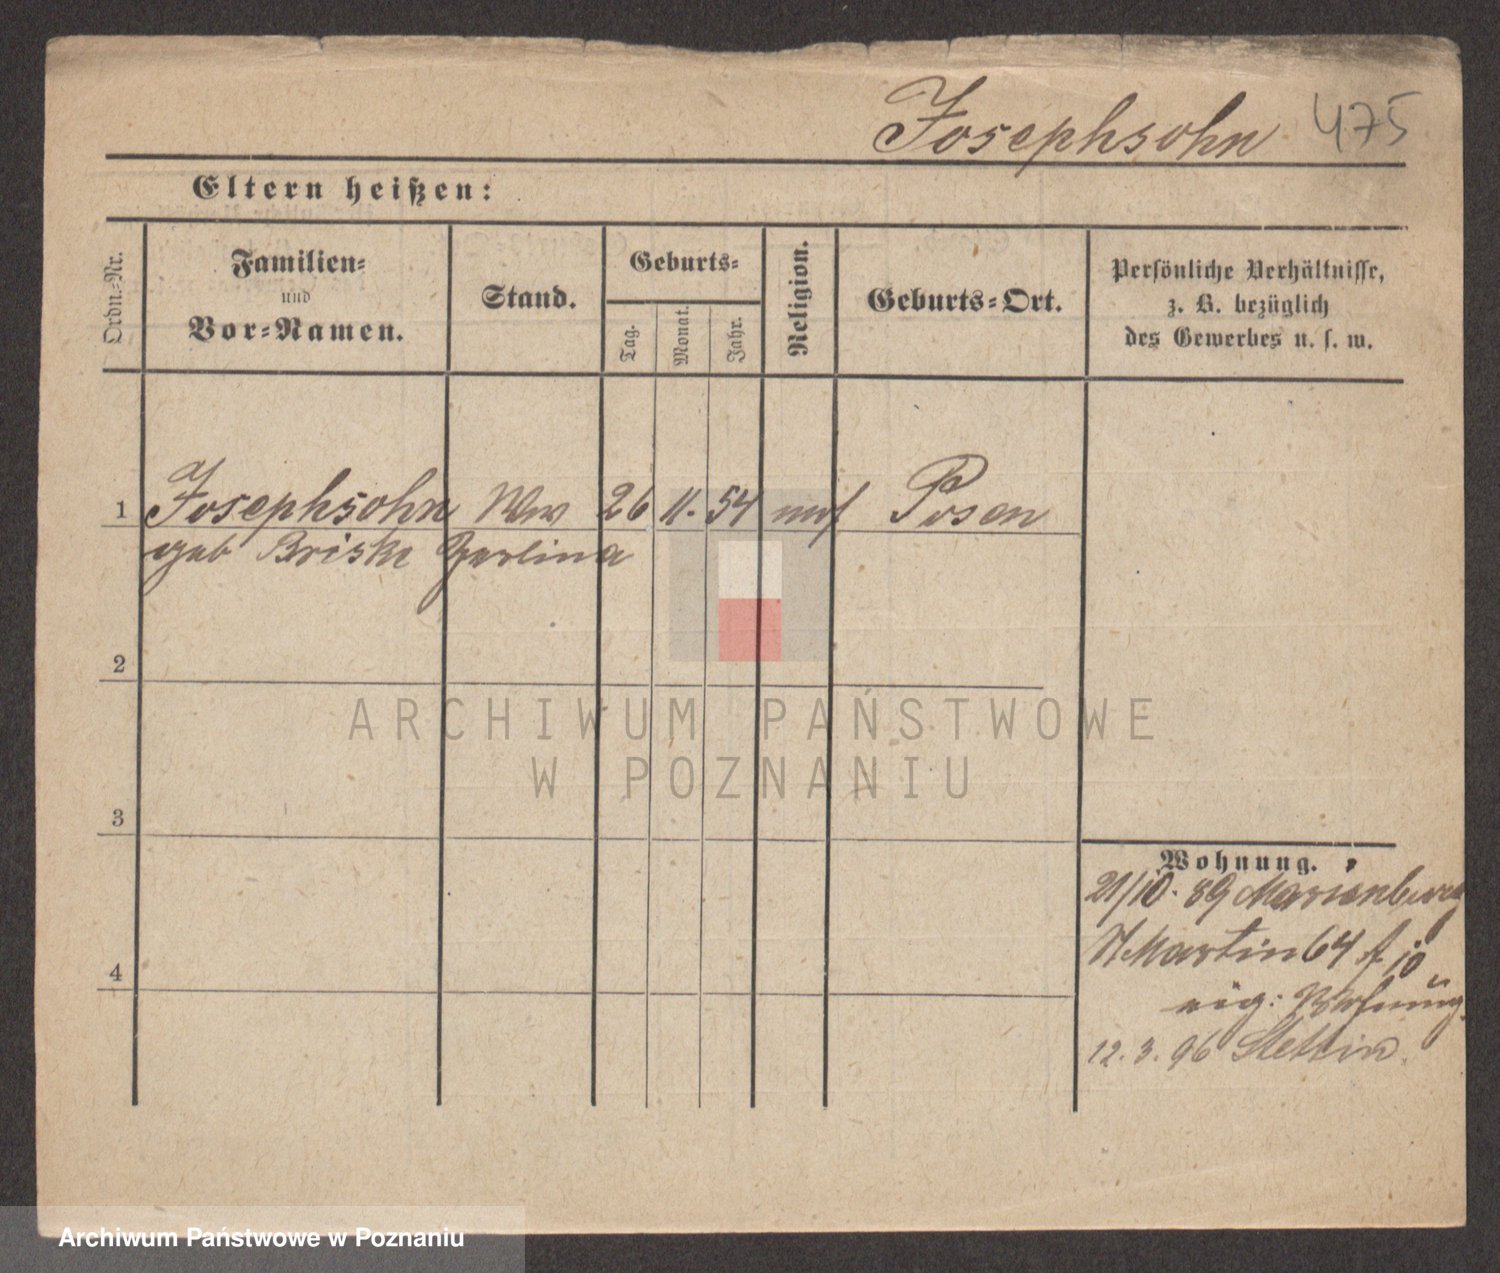 Josephsohn 475
Eltern heißen:
Ordn.-Nr.
Familien-
und
Vor-Namen.
Stand.
Geburts-
Tag.
Monat.
Jahr.
Religion.
Geburts-Ort.
Persönliche Verhältnisse,
z. B. bezüglich
des Gewerbes u. s. w.
1 Josephsohn Ww 26 11. 54 mos Posen
geb Briske Zerlina
2
ARCHIWUM PAŃSTWOWE
W POZNANIU
3
Wohnung.
21/10. 89 Marienburg
St Martin 64
4
eig: Wohnung.
12. 3. 96 Stettin.
Archiwum Państwowe w Poznaniu